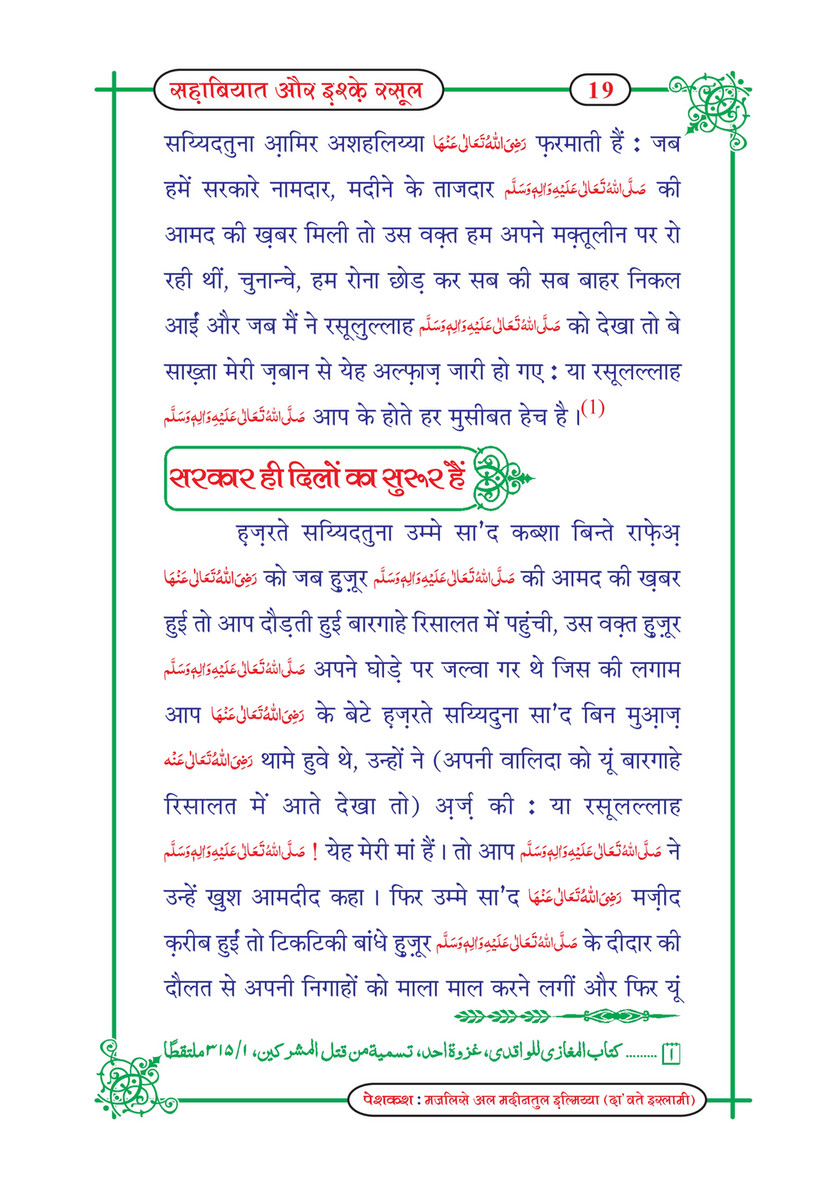 सह़ाबियात और इ़श्के़ रसूल
19
सय्यिदतुना आ़मिर अशहलिय्या رَضِیَ اللہُ تَعَالٰی عَنْہَا फ़रमाती हैं : जब
हमें सरकारे नामदार, मदीने के ताजदार صَلَّی اللہُ تَعَالٰی عَلَیْہِ وَاٰلِہٖ وَسَلَّم की
आमद की ख़बर मिली तो उस वक़्त हम अपने मक़्तूलीन पर रो
रही थीं, चुनान्चे, हम रोना छोड़ कर सब की सब बाहर निकल
आईं और जब मैं ने रसूलुल्लाह صَلَّی اللہُ تَعَالٰی عَلَیْہِ وَاٰلِہٖ وَسَلَّم को देखा तो बे
साख़्ता मेरी ज़बान से येह अल्फ़ाज़ जारी हो गए : या रसूलल्लाह
صَلَّی اللہُ تَعَالٰی عَلَیْہِ وَاٰلِہٖ وَسَلَّم आप के होते हर मुसीबत हेच है ।(1)
सरकार ही दिलों का सुरूर हैं
ह़ज़रते सय्यिदतुना उम्मे सा'द कब्शा बिन्ते राफ़ेअ़
رَضِیَ اللہُ تَعَالٰی عَنْہَا को जब हु़ज़ूर صَلَّی اللہُ تَعَالٰی عَلَیْہِ وَاٰلِہٖ وَسَلَّم की आमद की ख़बर
हुई तो आप दौड़ती हुई बारगाहे रिसालत में पहुंची, उस वक़्त हु़ज़ूर
صَلَّی اللہُ تَعَالٰی عَلَیْہِ وَاٰلِہٖ وَسَلَّم अपने घोड़े पर जल्वा गर थे जिस की लगाम
आप رَضِیَ اللہُ تَعَالٰی عَنْہَا के बेटे ह़ज़रते सय्यिदुना सा'द बिन मुआ़ज़
رَضِیَ اللہُ تَعَالٰی عَنْہ थामे हुवे थे, उन्हों ने (अपनी वालिदा को यूं बारगाहे
रिसालत में आते देखा तो) अ़र्ज़ की : या रसूलल्लाह
صَلَّی اللہُ تَعَالٰی عَلَیْہِ وَاٰلِہٖ وَسَلَّم ! येह मेरी मां हैं । तो आप صَلَّی اللہُ تَعَالٰی عَلَیْہِ وَاٰلِہٖ وَسَلَّم ने
उन्हें ख़ुश आमदीद कहा । फिर उम्मे सा'द رَضِیَ اللہُ تَعَالٰی عَنْہَا मज़ीद
क़रीब हुईं तो टिकटिकी बांधे हु़ज़ूर صَلَّی اللہُ تَعَالٰی عَلَیْہِ وَاٰلِہٖ وَسَلَّم के दीदार की
दौलत से अपनी निगाहों को माला माल करने लगीं और फिर यूं
١ ......... کتاب المغازی للواقدی، غزوۃ احد، تسمیۃ من قتل المشرکین، ١/٣١٥ ملتقطًا
पेशकश : मजलिसे अल मदीनतुल इ़ल्मिय्या (दा'वते इस्लामी)